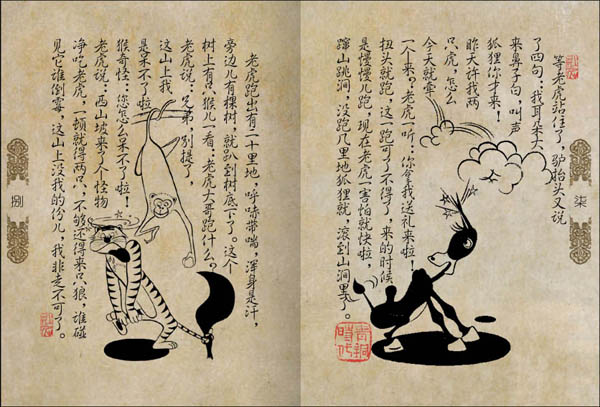 等老虎站住了，驴抬头又说
了四句：我耳朵大
来鼻子句，叫声
狐狸你才来！
昨天许我两
只虎，怎么
今天就牵
一个来？老虎一听：你拿我送礼来啦！
扭头就跑，这一跑可了不得了，来的时候
是慢慢儿跑，现在老虎一害怕就快啦，
蹿山跳涧，没跑几里地狐狸就，滚到山涧里去了。
柒
青铜時代
老虎跑出有二十里地，呼哧带喘，浑身是汗，
旁边儿有棵树，就趴到树底下了。这个
树上有只猴儿一看：老虎大哥跑什么？
老虎说：兄弟，别提了，
这山上我
是呆不了啦
猴奇怪：您怎么呆不了啦！
老虎说：西山坡来了个怪物
净吃老虎，一顿就得两只，不够还得来只狼，谁碰
见它谁倒霉，这山上没我的份儿，我非走不可了。
捌